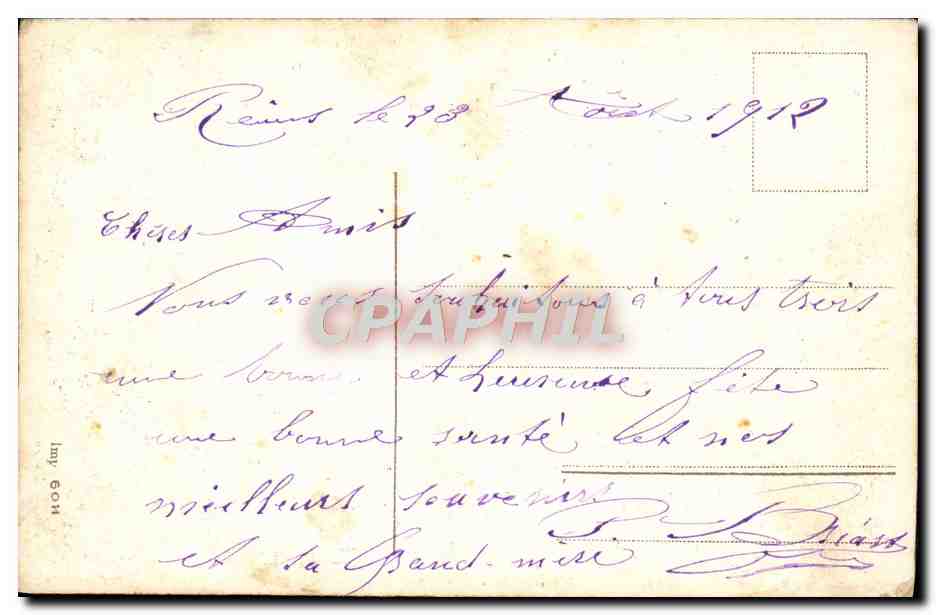 Reims le 23 Août 1912
Chères Amis
Nous vous souhaitons à tous trois
une bonne et heureuse fête
une bonne santé et nos
meilleurs souvenirs
P. Briart
et sa Grand-mère
CPAPHIL
Imp 6011